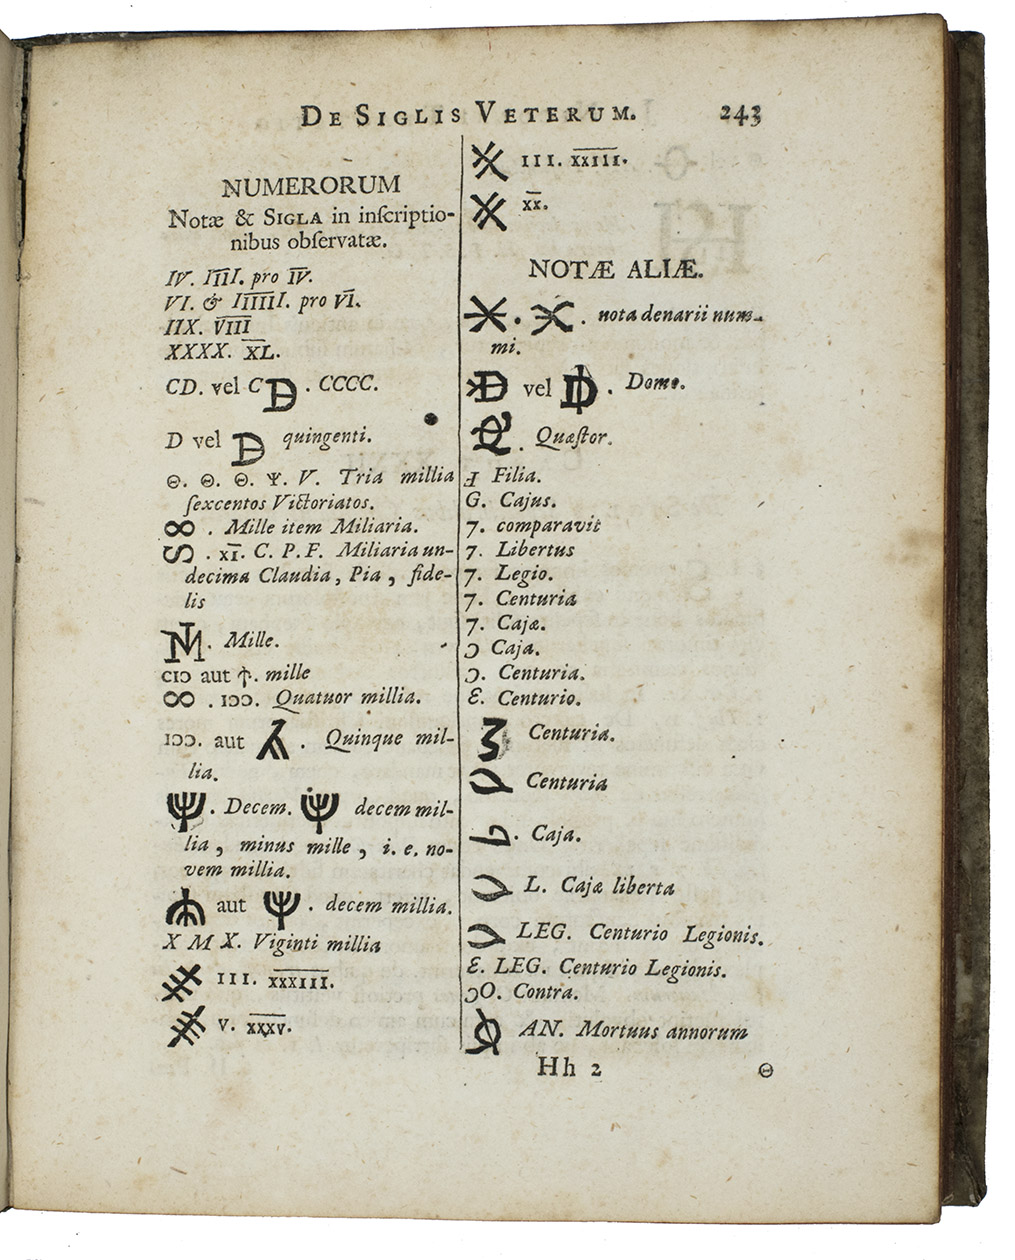 DE SIGLIS VETERUM. 243
NUMERORUM
Notæ & SIGLA in inſcriptio-
nibus obſervatæ.
IV. I̅I̅I̅I. pro I̅V̅.
VI. & I̅I̅I̅I̅I̅I. pro V̅I̅.
IIX. V̅I̅I̅I̅
XXXX. X̅L.
CD. vel CD . CCCC.
D vel D quingenti.
Θ. Θ. Θ. Ψ. V. Tria millia
ſexcentos Victoriatos.
∞ . Mille item Miliaria.
. X̅I̅. C. P. F. Miliaria un-
decima Claudia, Pia, fide-
lis
M. Mille.
CIↃ aut . mille
∞ . IↃↃ. Quatuor millia.
IↃↃ. aut . Quinque mil-
lia.
. Decem. decem mil-
lia, minus mille, i. e. no-
vem millia.
aut . decem millia.
X M X. Viginti millia
III. X̅X̅X̅I̅I̅I̅.
V. X̅X̅X̅V̅.
III. X̅X̅I̅I̅I̅I̅.
X̅X̅.
NOTÆ ALIÆ.
. . nota denarii num-
mi.
D vel D . Domo.
Q . Quæſtor.
Ⅎ Filia.
G. Cajus.
7. comparavit
7. Libertus
7. Legio.
7. Centuria
7. Cajæ.
Ↄ Caja.
Ↄ. Centuria.
Ɛ. Centurio.
Centuria.
Centuria
. Caja.
L. Cajæ liberta
LEG. Centurio Legionis.
Ɛ. LEG. Centurio Legionis.
ↃO. Contra.
AN. Mortuus annorum
Hh 2 Θ